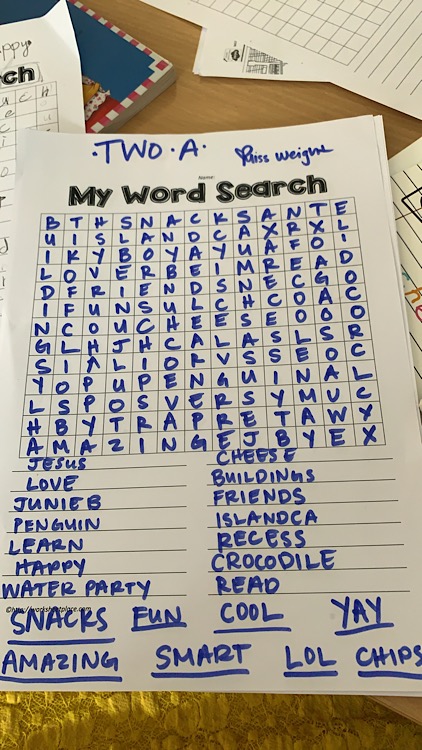 ppy
ch
·TWO·A·
Miss Weight
Name:
My Word Search
B T H S N A C K S A N T E
U I S L A N D C A X R X L
I K Y B O Y A Y U A F O I
L O V E R B E I M R E A D
D F R I E N D S N E C G O
I F U N S U L C H C O A C
N C O U C H E E S E O O O
G L H J H C A L A S L S R
S I A L I O R V S S E O C
Y O P U P E N G U I N A L
L S P O S V E R S Y M U C
H B Y T R A P R E T A W Y
A M A Z I N G E J B Y E X
JESUS CHEESE
LOVE BUILDINGS
JUNIE B FRIENDS
PENGUIN ISLANDCA
LEARN RECESS
HAPPY CROCODILE
WATER PARTY READ
©http://worksheetplace.com
SNACKS FUN COOL YAY
AMAZING SMART LOL CHIPS